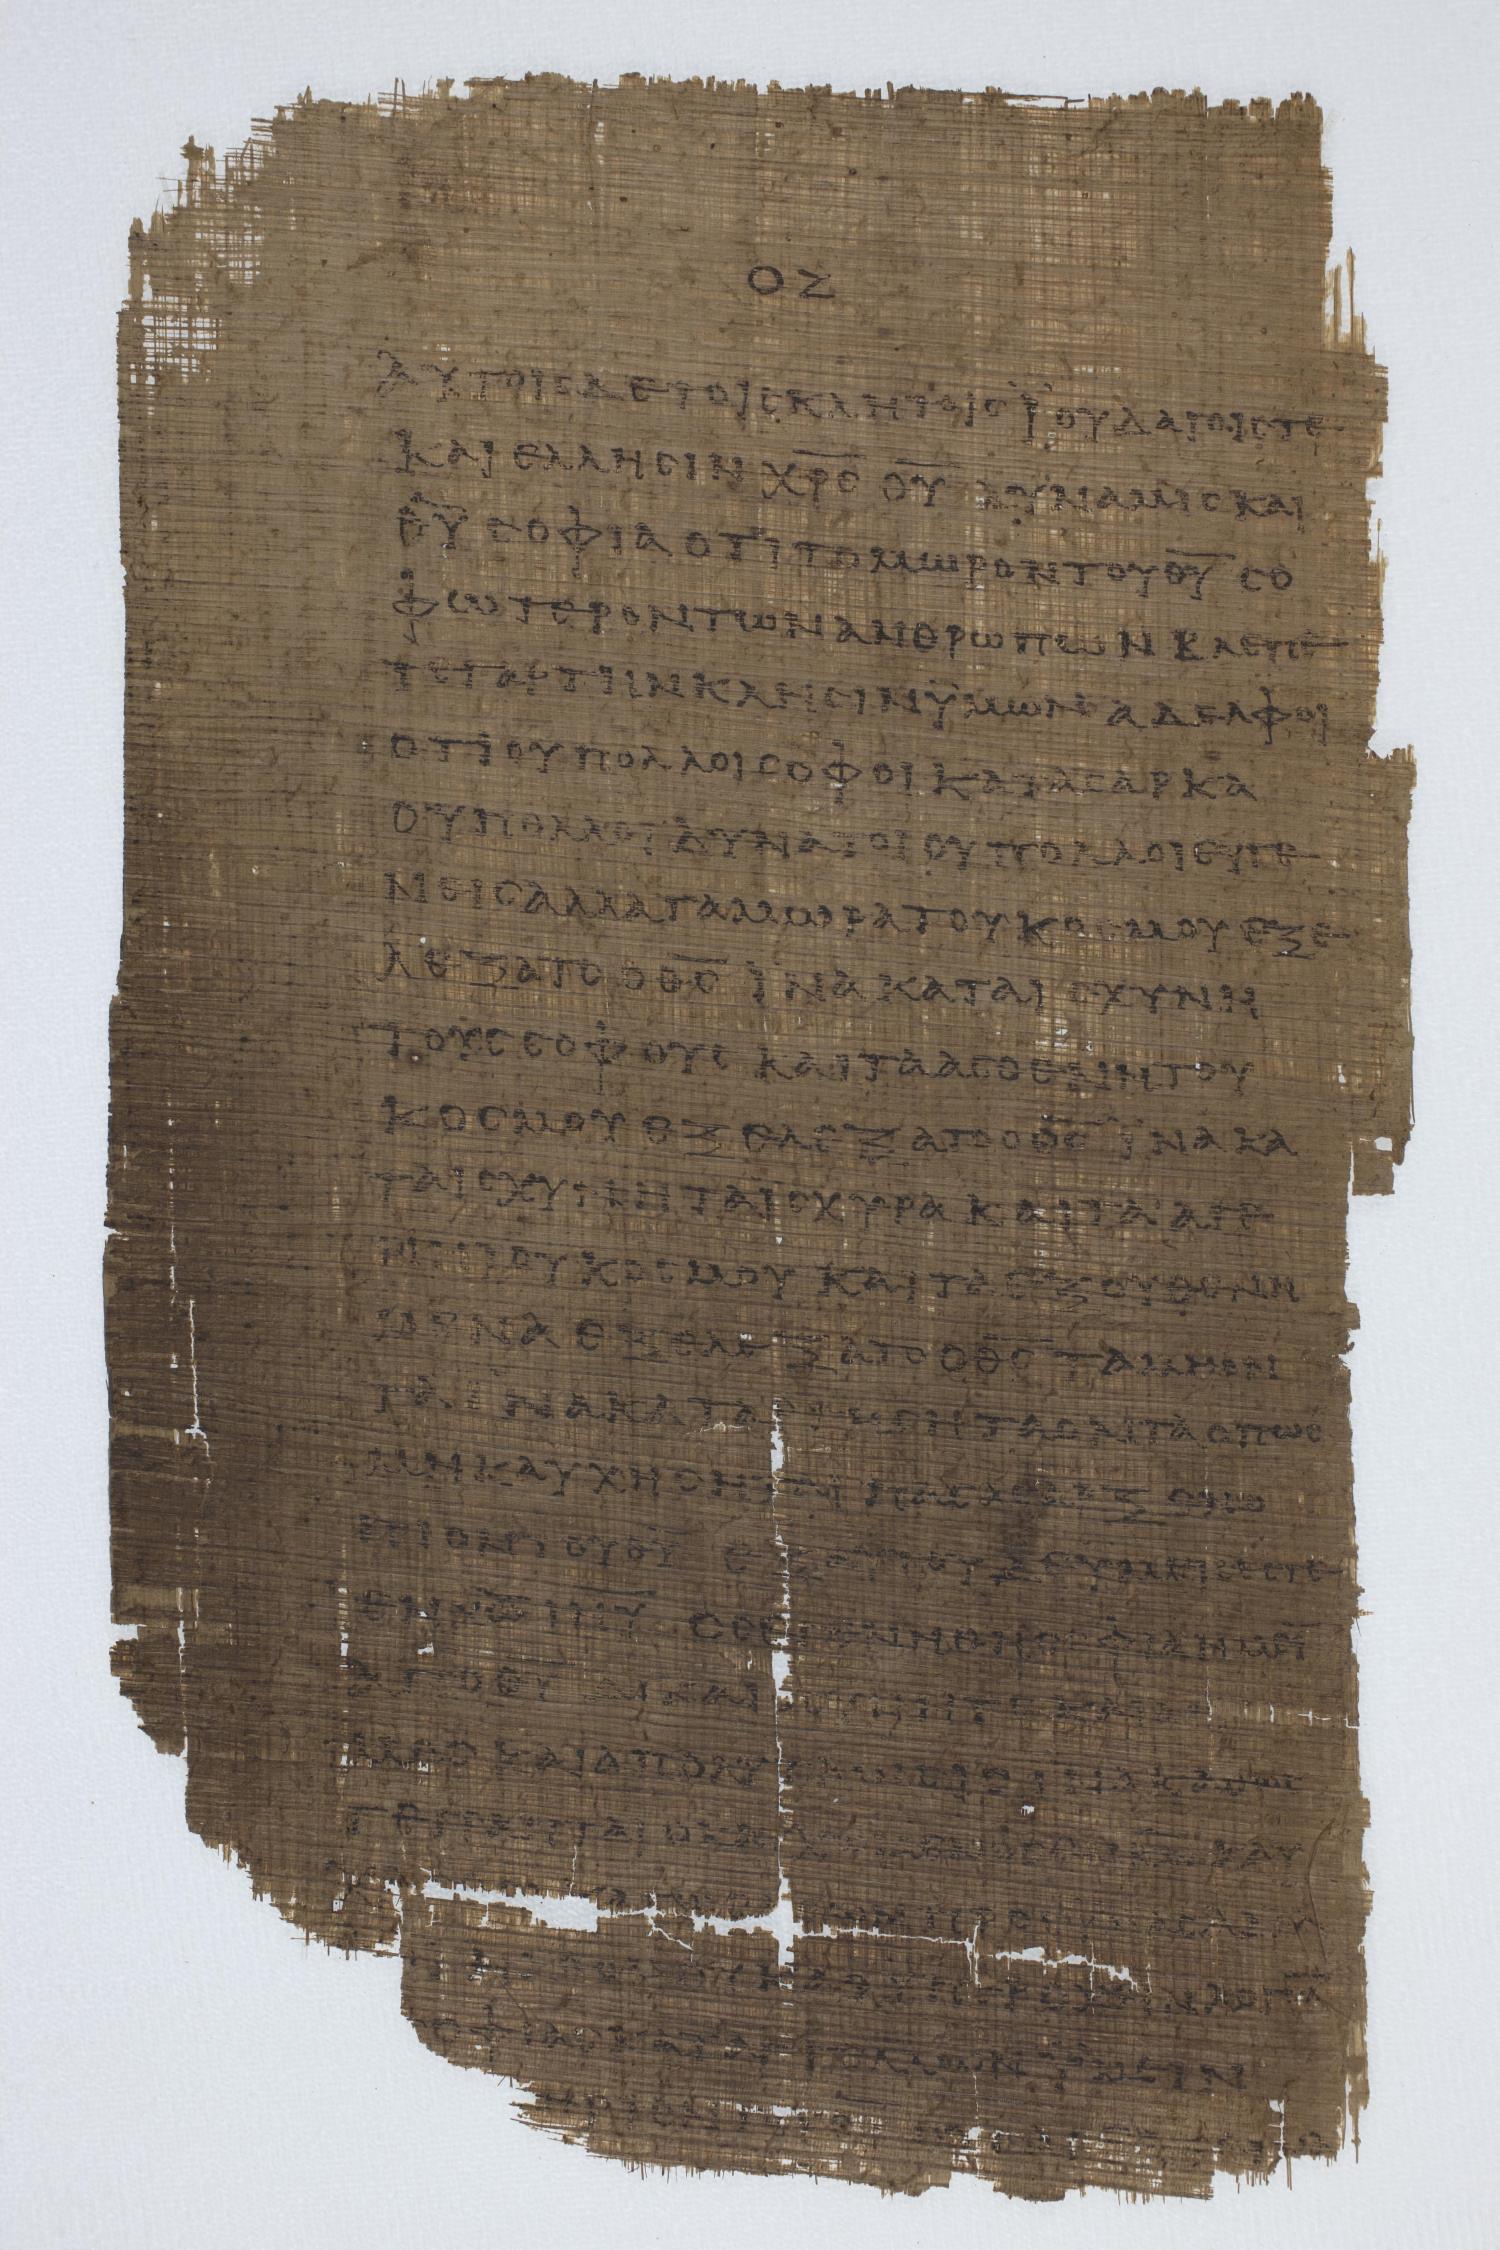 ΟΖ
ΑΥΤΟΙϹΔΕΤΟΙϹΚΛΗΤΟΙϹΪΟΥΔΑΙΟΙϹΤΕ
ΚΑΙΕΛΛΗϹΙΝ Χ̅Ρ̅Ϲ̅ Θ̅Υ̅ ΔΥΝΑΜΙϹΚΑΙ
Θ̅Υ̅ ϹΟΦΙΑΟΤΙΤΟΜΩΡΟΝΤΟΥΘ̅Υ̅ ϹΟ
ΦΩΤΕΡΟΝΤΩΝΑΝΘΡΩΠΩΝ ΒΛΕΠΕ
ΤΕΓΑΡΤΗΝΚΛΗϹΙΝΫΜΩΝΑΔΕΛΦΟΙ
ΟΤΙΟΥΠΟΛΛΟΙϹΟΦΟΙΚΑΤΑϹΑΡΚΑ
ΟΥΠΟΛΛΟΙΔΥΝΑΤΟΙΟΥΠΟΛΛΟΙΕΥΓΕ
ΝΕΙϹΑΛΛΑΤΑΜΩΡΑΤΟΥΚΟϹΜΟΥΕΞΕ
ΛΕΞΑΤΟ ΟΘ̅Ϲ̅ ΪΝΑΚΑΤΑΙϹΧΥΝΗ
ΤΟΥϹϹΟΦΟΥϹ ΚΑΙΤΑΑϹΘΕΝΗΤΟΥ
ΚΟϹΜΟΥΕΞΕΛΕΞΑΤΟΟΘ̅Ϲ̅ ΪΝΑΚΑ
ΤΑΙϹΧΥΝΗΤΑΙϹΧΥΡΑ ΚΑΙΤΑ ΑΓΕ
ΝΗΤΟΥΚΟϹΜΟΥ ΚΑΙΤΑΕΞΟΥΘΕΝΗ
ΜΕΝΑΕΞΕΛΕΞΑΤΟ ΟΘ̅Ϲ̅ ΤΑΜΗΟΝ
ΤΑ ΪΝΑΚΑΤΑΡΓΗϹΗΤΑΟΝΤΑΟΠΩϹ
ΜΗΚΑΥΧΗϹΗΤΑΙ ΠΑϹΑϹΑΡΞ ΕΝΩ
ΠΙΟΝΤΟΥΘ̅Υ̅ ΕΞΑΥΤΟΥΔΕΥΜΕΙϹΕϹΤΕ
ΕΝΧ̅Ρ̅Ω̅ Ι̅Η̅Υ̅ ΟϹΕΓΕΝΗΘΗϹΟΦΙΑΗΜΙ̅
ΑΠΟΘ̅Υ̅ ΔΙΚΑΙΟϹΥΝΗΤΕΚΑΙ
ΚΑΙΑΠΟΛΥΤΡΩϹΙϹ ΪΝΑΚΑΘΩϹ
ΓΕΓΡΑΠΤΑΙΟΚΑΥΧΩΜΕΝΟϹ ΚΑΥ
ϹΟΦΙΑϹΚΑΤΑΓΓΕΛΛΩΝ ΫΜΕΙΝ